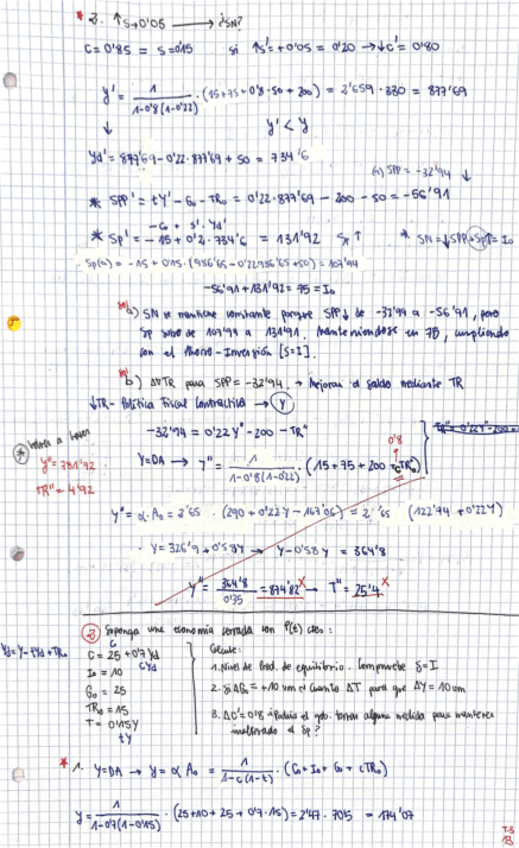 * 2. ↑s→0'05 → ¿SN?
C=0'85 = s=0'15 si ↑s'=+0'05 = 0'20 →↓c' = 0'80
y' = 1/(1-0'8(1-0'22)) · (15+75+0'8·50+200) = 2'659·330 = 877'69
↓ y' < y
Yd' = 877'69-0'22·877'69+50 = 734'6
(a) SPP = -32'94 ↓
* SPP' = tY' - G₀ - TR₀ = 0'22·877'69 - 200 - 50 = -56'91
-C₀ + s'·Yd'
* Sp' = -15 + 0'2·734'6 = 131'92 Sp ↑ * SN=↓SPP+Sp↑=I₀
Sp(a) = -15 + 0'15·(986'65-0'22·986'65+50) = 107'94
-56'91+131'92 = 75 = I₀
a) SN se mantiene constante porque SPP↓ de -32'94 a -56'91, pero
Sp sube de 107'94 a 131'91. Manteniendose en 75, cumpliendo
con el Ahorro-Inversión [S=I].
b) ΔVTR para SPP = -32'94. → Mejorar el saldo mediante TR
↓TR- Política Fiscal Contractiva → Y
-32'94 = 0'22Y" - 200 - TR"
* Volver a hacer
y" = 781'92
TR" = 4'92
0'8
Y=DA → Y" = 1/(1-0'8(1-0'22)) · (15+75+200+cTR₀")
Y" = α·A₀ = 2'65 · (290 + 0'22Y - 167'06) = 2'65 (122'94 + 0'22Y)
Y = 326'9 + 0'58Y → Y-0'58Y = 364'8
Y" = 364'8/0'35 = 874'82 X → T" = 25'4 X
2. Suponga una economía cerrada con P(t) ctes:
Yd=Y-tYd+TR₀
C = 25 + 0'7Yd
cYd
I₀ = 10
G₀ = 25
TR₀ = 15
T = 0'15Y
tY
Calcule:
1. Nivel de Prod. de equilibrio. Compruebe S=I
2. Si ΔG₀ = +10 um ¿Cuánto ΔT para que ΔY = 10 um
3. ΔC'=0'8 ¿Podría el gob. tomar alguna medida para mantener
inalterado el Sp?
* 1. Y=DA → y = α A₀ = 1/(1-c(1-t)) · (C₀+I₀+G₀+cTR₀)
y = 1/(1-0'7(1-0'15)) · (25+10+25+0'7·15) = 2'47 · 70'5 = 174'07